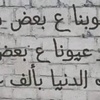 وبنا ع بعض
عيوننا ع بعض
الدنيا بألف